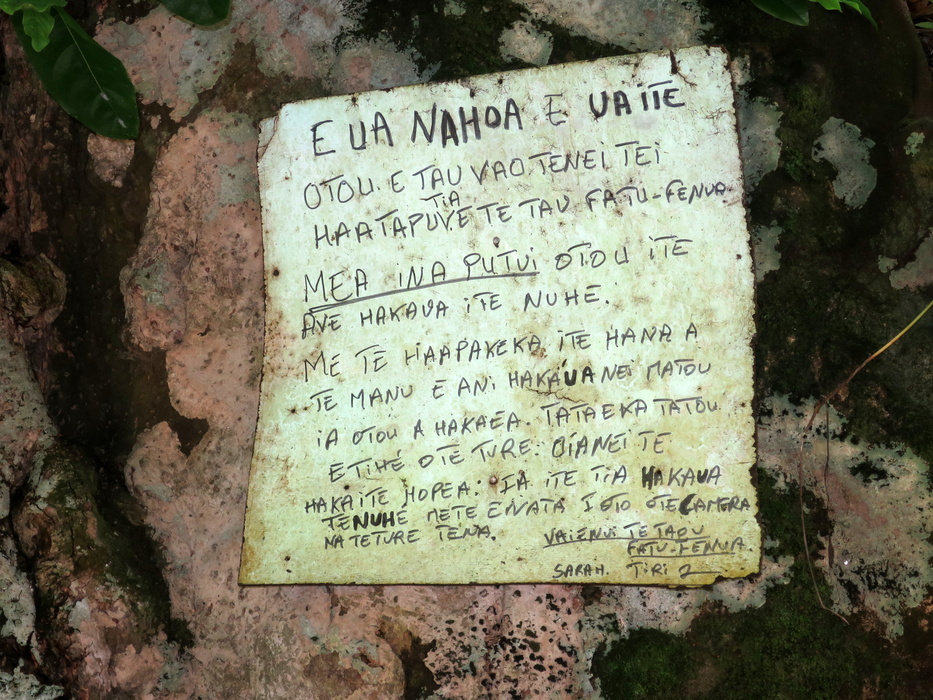 E UA NAHOA E UA IITE
OTOU. E TAU VAO TENEI TEI
TIA
HAATAPUVE TE TAU FATU-FENUA.
MEA INA PUTUI OTOU ITE
AVE HAKAUA ITE NUHE.
ME TE HAAPAKEKA ITE HANA A
TE MANU E ANI HAKAUA NEI MATOU
IA OTOU A HAKAEA. TATAEKA TATOU
ETIHÉ OTE TURE: OIANEI TE
HAKAITE HOPEA: IA ITE TIA HAKAUA
TENUHÉ METE ENATA IOTO OTE CAMERA
NA TETURE TENA.
VAIENUI TE TAOU
FATU-FENUA.
SARAH. TIRI 2